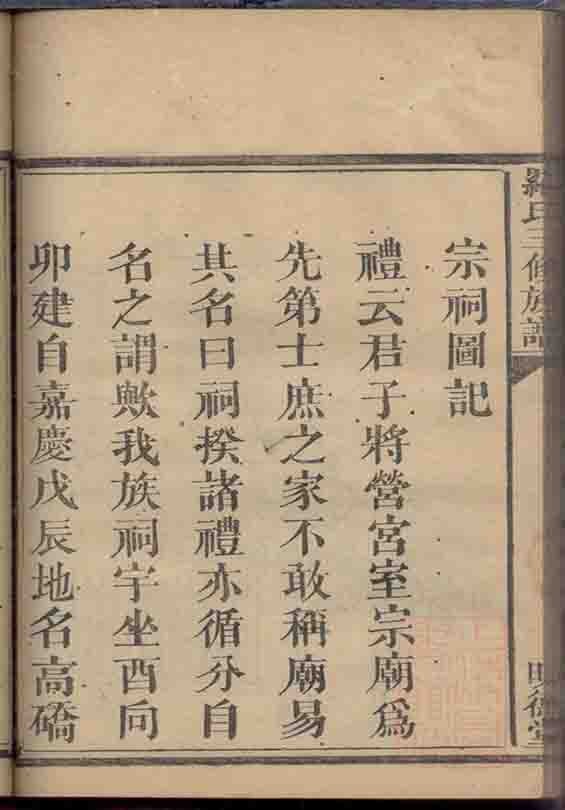 羅氏三修族譜
明德堂
宗祠圖記
禮云君子將營宮室宗廟爲
先第士庶之家不敢稱廟易
其名曰祠揆諸禮亦循分自
名之謂歟我族祠宇坐酉向
卯建自嘉慶戊辰地名高磽